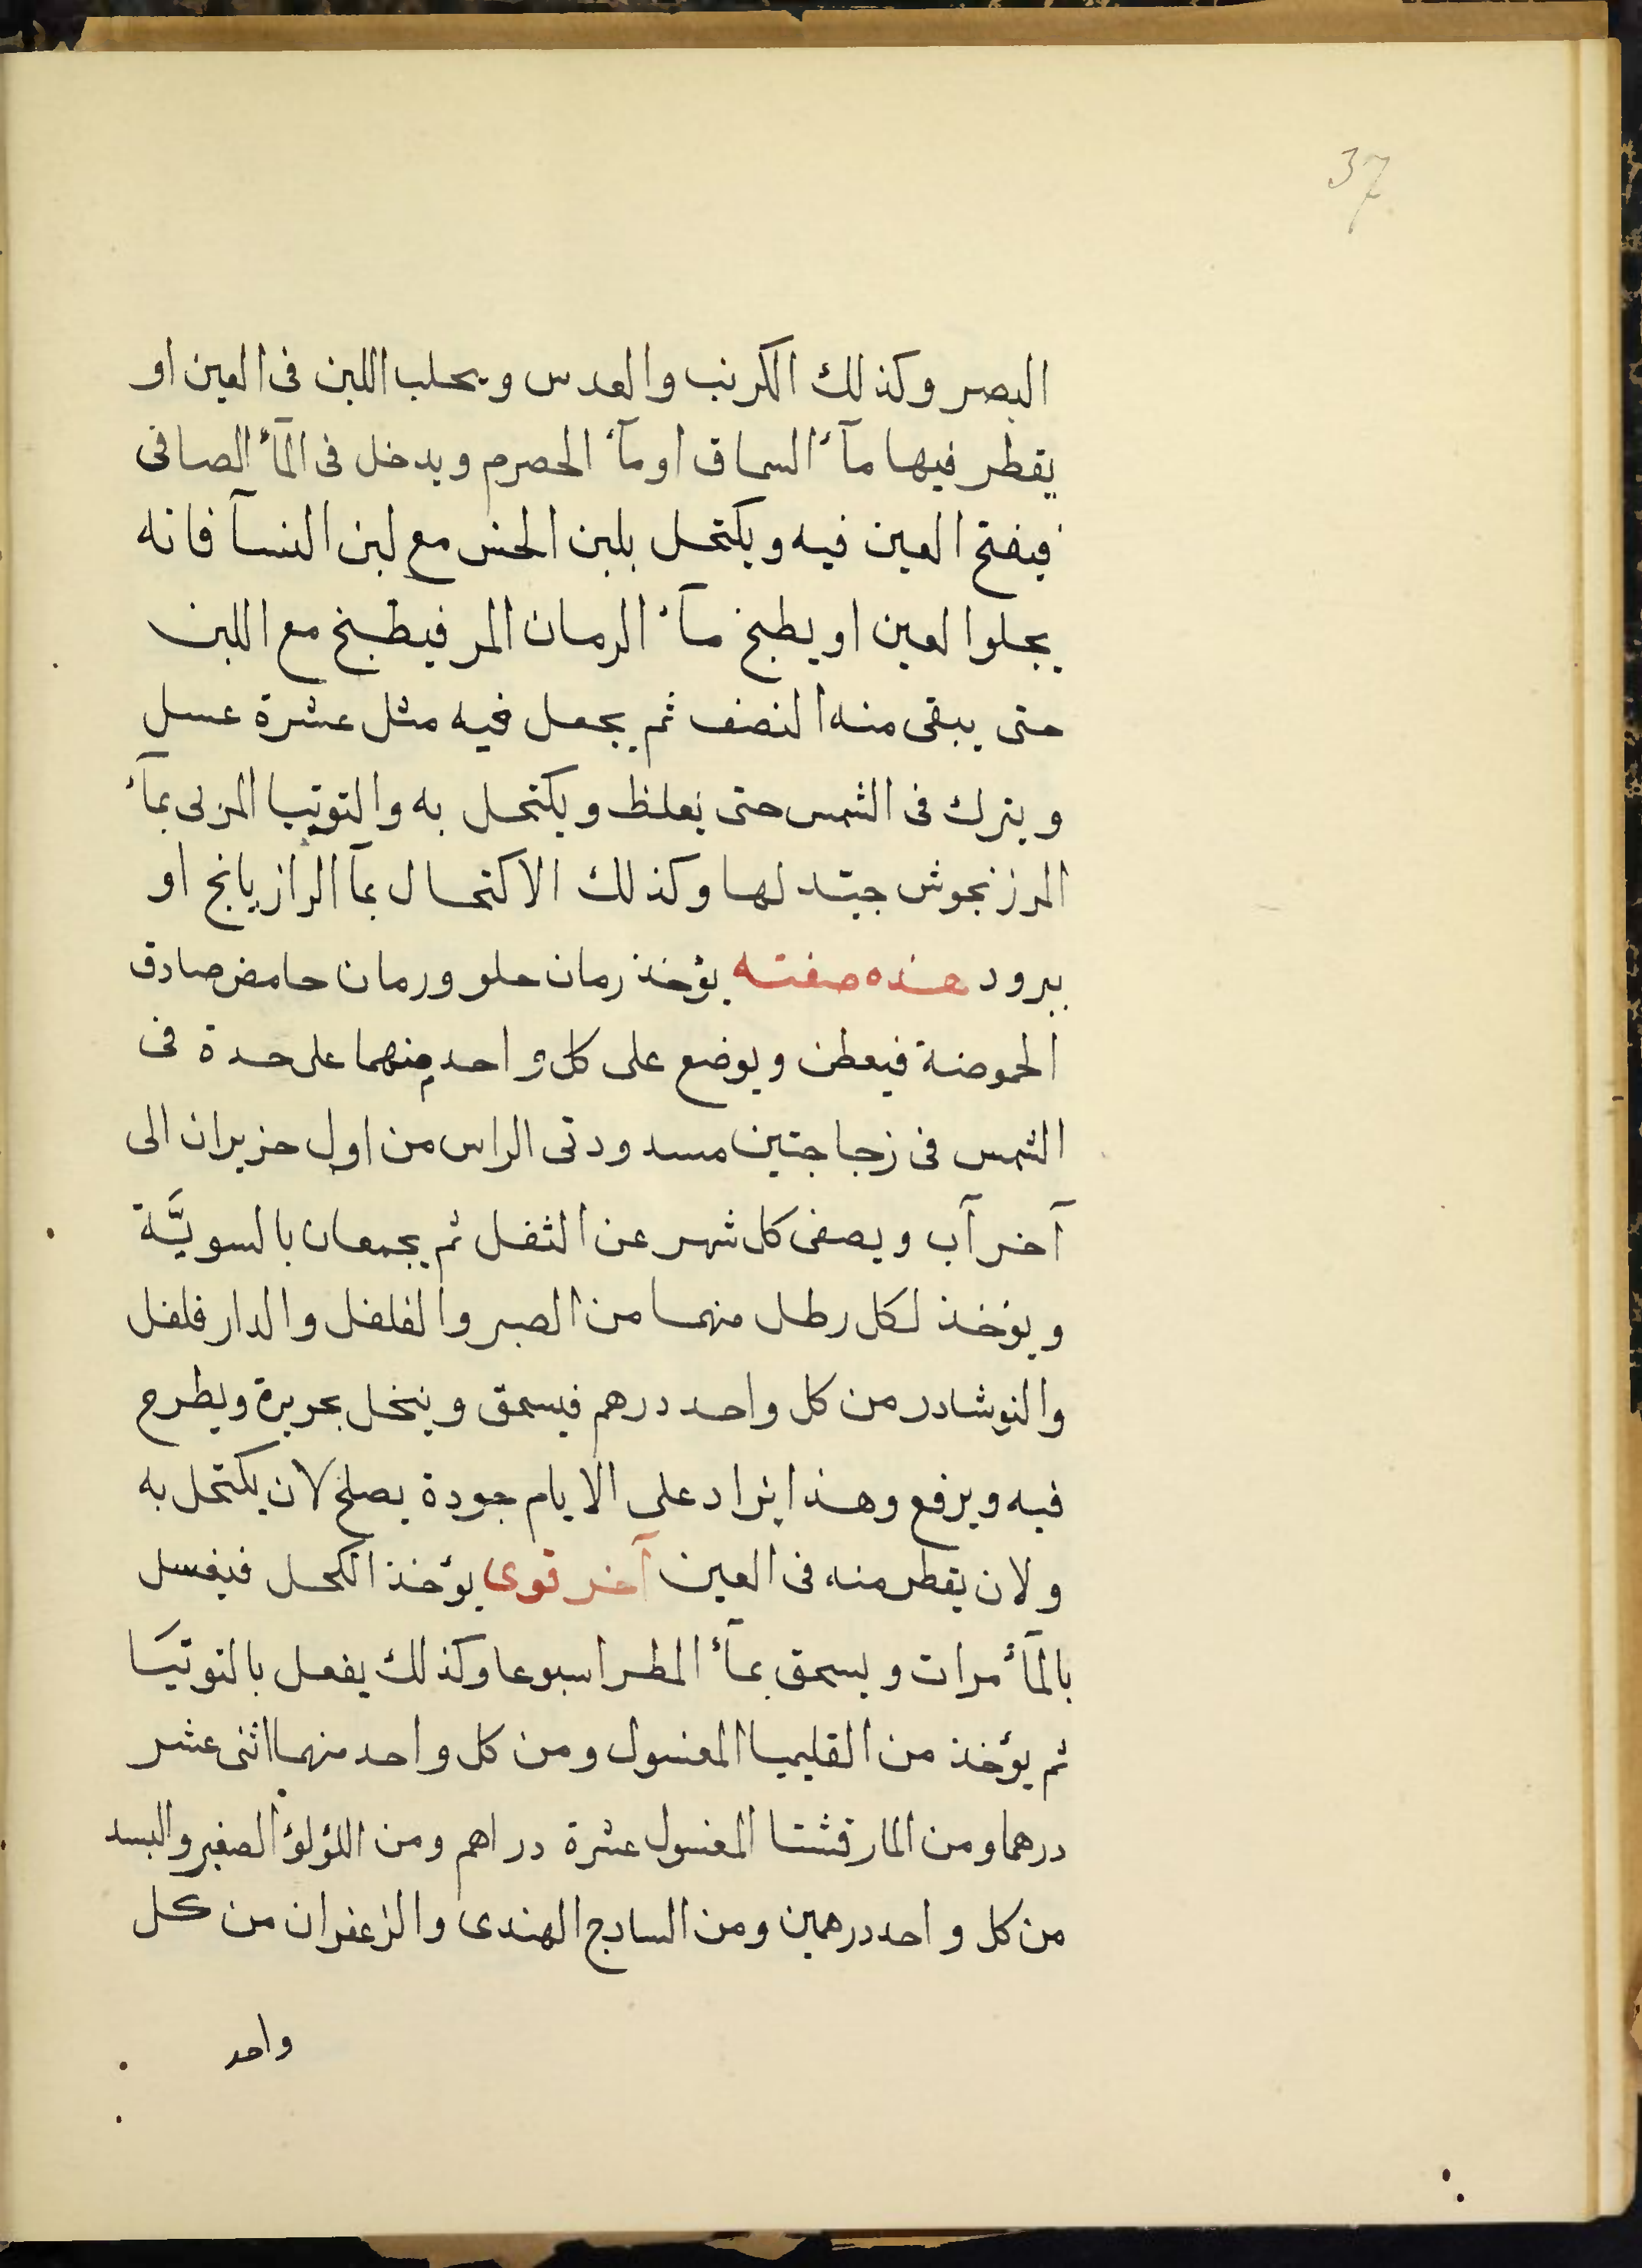 37
البصر وكذلك الكرنب والعدس ويحلب اللبن فى العين او
يقطر فيها مآء السماق او مآء الحصرم ويدخل فى المآء الصافى
فيفتح العين فيه ويكتحل بلبن الخس مع لبن النسآ فانه
يجلوا لعين او يطبخ مآء الرمان المر فيطبخ مع اللبن
حتى يبقى منه النصف ثم يجعل فيه مثل عشرة عسل
ويترك فى الشمس حتى يغلظ ويكتحل به والتوتيا المربى بمآء
المرزنجوش جيد لها وكذلك الاكتحال بمآ الرازيانج او
ببرود هذه صفته يؤخذ رمان حلو ورمان حامض صادق
الحموضة فيعطن ويوضع على كل واحد منهما على حدة فى
الشمس فى زجاجتين مسدودتى الراس من اول حزيران الى
آخر آب ويصفى كل شهر عن الثفل ثم يجمعان بالسويَّة
ويؤخذ لكل رطل منهما من الصبر والفلفل والدار فلفل
والنوشادر من كل واحد درهم فيسحق وينخل بحريرة ويطرح
فيه ويرفع وهذا يزاد على الايام جودة يصلح لان يكتحل به
ولان يقطر منه فى العين آخر قوى يؤخذ الكحل فيغسل
بالمآء مرات ويسحق بمآء المطر اسبوعا وكذلك يفعل بالتوتيَا
ثم يؤخذ من القليميا المغسول ومن كل واحد منهما اثنى عشر
درهما ومن المارقشثتا المغسول عشرة دراهم ومن اللؤلؤ الصغير والبسد
من كل واحد درهمين ومن السادج الهندى والزعفران من كل
واحد